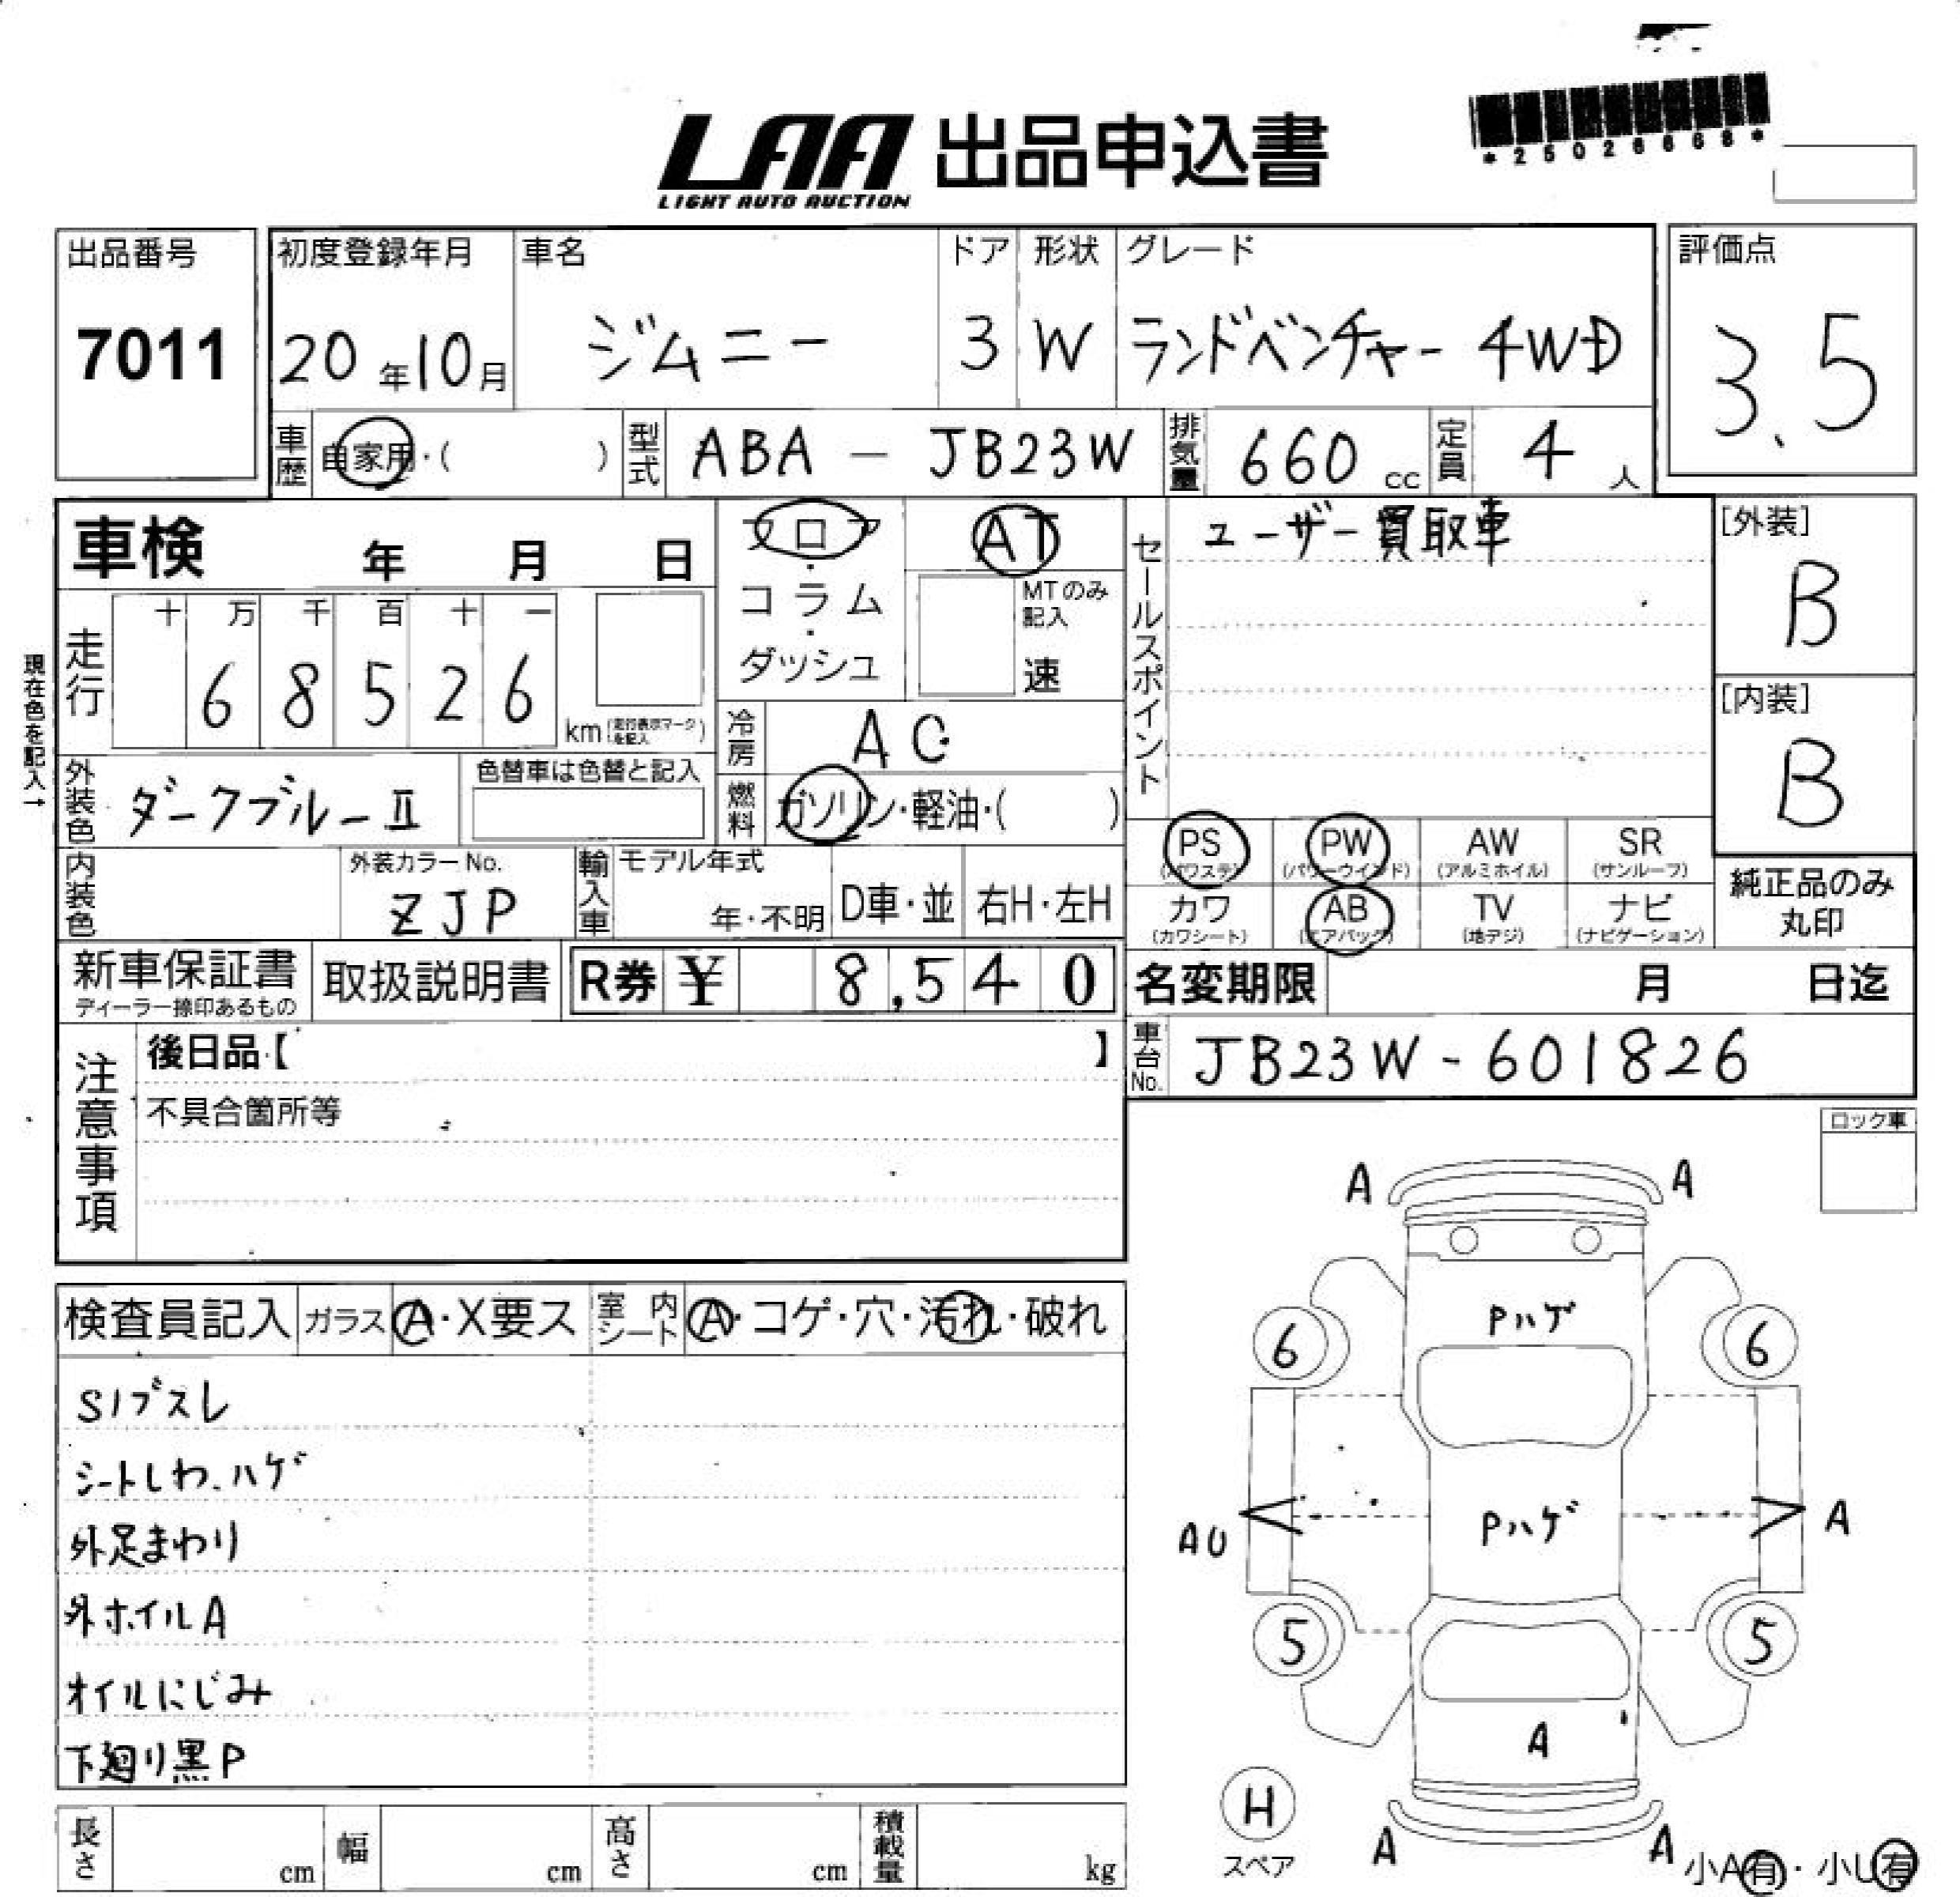 LAA 出品申込書
LIGHT AUTO AUCTION
*25026668*
出品番号
7011
初度登録年月
20年10月
車名
ジムニー
ドア
3
形状
W
グレード
ランドベンチャー 4WD
評価点
3.5
車歴
自家用・( )
型式
ABA - JB23W
排気量
660 cc
定員
4 人
車検 年 月 日
現在色を記入→
走行
十 万 千 百 十 一
6 8 5 2 6
km (走行表示マークを記入)
フロア・コラム・ダッシュ
AT
MTのみ記入
速
冷房
AC
燃料
ガソリン・軽油・( )
外装色
ダークブルーII
色替車は色替と記入
内装色
外装カラーNo.
ZJP
輸入車
モデル年式
年・不明
D車・並
右H・左H
セールスポイント
ユーザー買取車
[外装]
B
[内装]
B
PS (パワステ)
PW (パワーウインド)
AW (アルミホイル)
SR (サンルーフ)
カワ (カワシート)
AB (エアバッグ)
TV (地デジ)
ナビ (ナビゲーション)
純正品のみ
丸印
新車保証書
ディーラー捺印あるもの
取扱説明書
R券 ¥ 8,540
名変期限 月 日迄
車台No.
JB23W-601826
注意事項
後日品【 】
不具合箇所等
ロック車
検査員記入
ガラス
A・X要ス
室内シート
A・コゲ・穴・汚れ・破れ
S/ブスレ
シートしわ、ハゲ
外足まわり
外ホイルA
オイルにじみ
下廻り黒P
A A
Pハゲ
6 6
Pハゲ
AU A
5 5
A
H
スペア
A A
小A有・小U有
長さ cm
幅 cm
高さ cm
積載量 kg